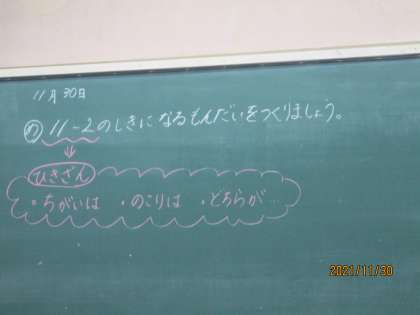 11月30日
め 11-2のしきになるもんだいをつくりましょう。
ひきざん
・ちがいは ・のこりは ・どちらが…
2021/11/30